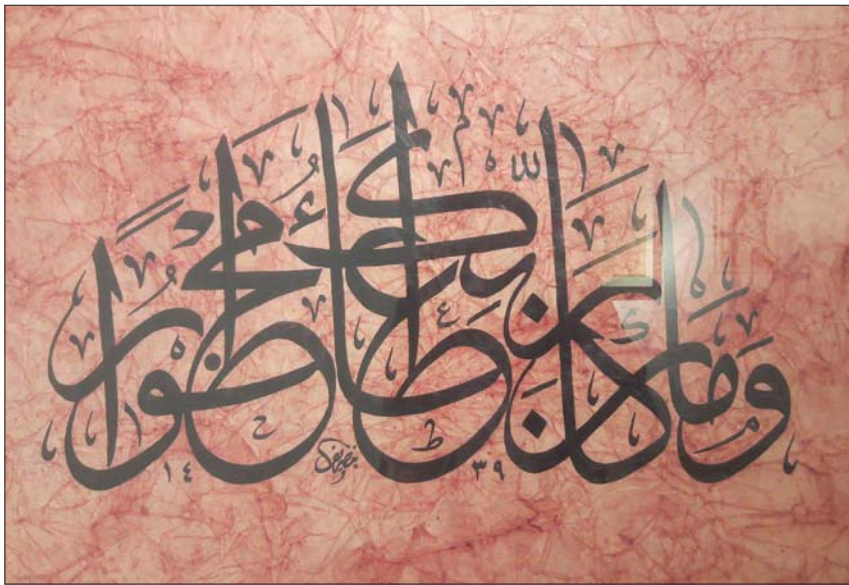 وَمَا كَانَ عَطَاءُ رَبِّكَ مَحْظُورًا
١٤٣٩